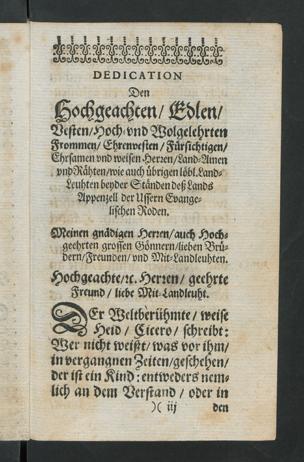 DEDICATION
Den
Hochgeachten/ Edlen/
Vesten/Hoch- vnd Wolgelehrten
Frommen/ Ehrenvesten/ Fürsichtigen/
Ehrsamen vnd weisen Herren/Land-Amen
vnd Rähten/wie auch übrigen löbl. Land-
Leuhten beyder Ständen deß Lands
Appenzell der Ussern Evange-
lischen Roden.
Meinen gnädigen Herren/auch Hoch-
geehrten grossen Gönnern/lieben Brü-
dern/Freunden/ vnd Mit-Landleuhten.
Hochgeachte/ꝛc. Herren/ geehrte
Freund/ liebe Mit-Landleuht.
DEr Weltberühmte/ weise
Heid/ Cicero/ schreibt:
Wer nicht weißt/was vor ihm/
in vergangnen Zeiten/geschehen/
der ist ein Kind: entweders nem-
lich an dem Verstand/ oder in
)( iij den